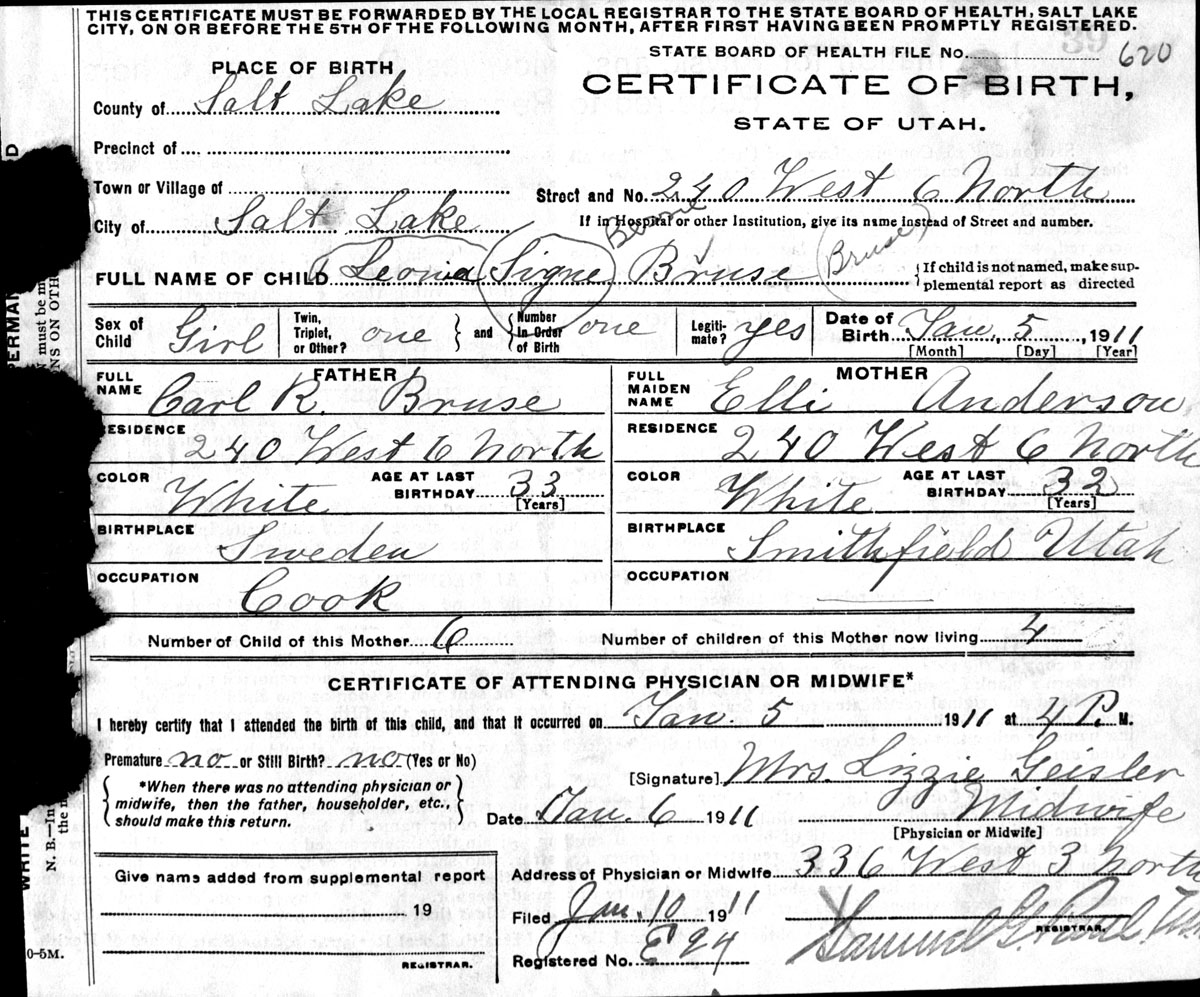 THIS CERTIFICATE MUST BE FORWARDED BY THE LOCAL REGISTRAR TO THE STATE BOARD OF HEALTH, SALT LAKE
CITY, ON OR BEFORE THE 5TH OF THE FOLLOWING MONTH, AFTER FIRST HAVING BEEN PROMPTLY REGISTERED.
STATE BOARD OF HEALTH FILE No. 620
39
PLACE OF BIRTH
CERTIFICATE OF BIRTH,
STATE OF UTAH.
County of Salt Lake
Precinct of
Town or Village of
Street and No. 240 West 6 North
City of Salt Lake
If in Hospital or other Institution, give its name instead of Street and number.
FULL NAME OF CHILD Leona Signe Bruse (Bruse)
{If child is not named, make sup-
plemental report as directed
Sex of Child Girl
Twin, Triplet, or Other? one
and
Number In Order of Birth one
Legiti-mate? yes
Date of Birth Jan. 5, 1911
[Month] [Day] [Year]
FATHER
FULL NAME Carl R. Bruse
RESIDENCE 240 West 6 North
COLOR White
AGE AT LAST BIRTHDAY 33
[Years]
BIRTHPLACE Sweden
OCCUPATION Cook
MOTHER
FULL MAIDEN NAME Elli Anderson
RESIDENCE 240 West 6 North
COLOR White
AGE AT LAST BIRTHDAY 32
[Years]
BIRTHPLACE Smithfield Utah
OCCUPATION
Number of Child of this Mother 6
Number of children of this Mother now living 4
CERTIFICATE OF ATTENDING PHYSICIAN OR MIDWIFE*
I hereby certify that I attended the birth of this child, and that it occurred on Jan. 5 1911 at 4 P. M.
Premature no or Still Birth? no (Yes or No)
*When there was no attending physician or
midwife, then the father, householder, etc.,
should make this return.
[Signature] Mrs. Lizzie Geisler
Date Jan. 6 1911 Midwife
[Physician or Midwife]
Address of Physician or Midwife 336 West 3 North
Give name added from supplemental report
19
REGISTRAR.
Filed Jan. 10 1911
Samuel G. Paul
REGISTRAR.
Registered No. E 94
PERMAN
must be m
NS ON OTH
WRITE
N. B.—In
the m
0-5M.